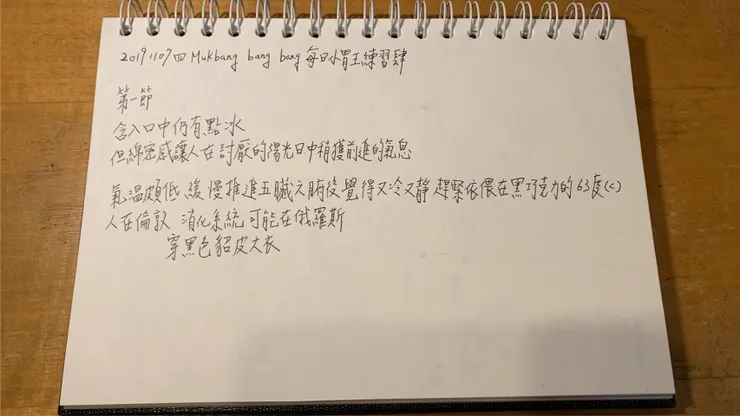 20191107四 Mukbang bang bang 每日小胃王練習肆
第一節
含入口中仍有點冰
但綿密感讓人在討厭的陽光日中稍獲前進的氣息
氣溫頗低 緩慢推進五臟六腑後覺得又冷又靜 趕緊依偎在黑巧克力的63度(c)
人在倫敦 消化系統可能在俄羅斯
穿黑色貂皮大衣